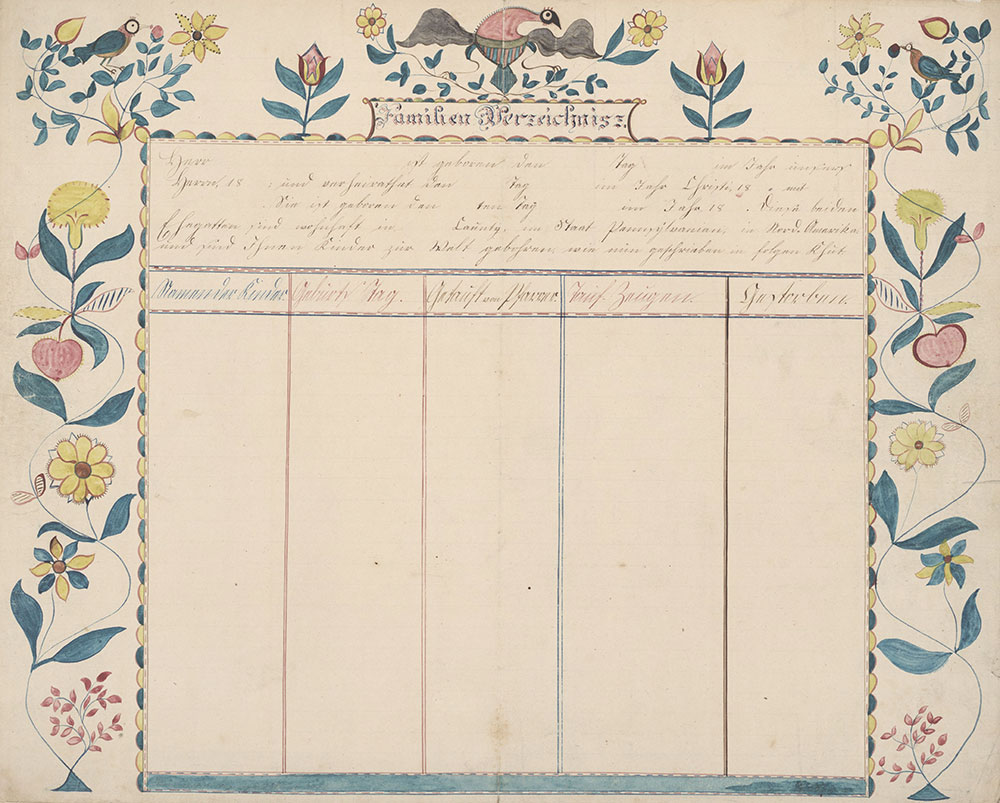 Familien Verzeichnisz.
Herr ist geboren den Tag im Jahr unsers
Herrn, 18 , und verheirathet den Tag im Jahr Christi, 18 , mit
Sie ist geboren den ten Tag im Jahr 18 . Diese beiden
Ehegatten sind wohnhaft in Caunty, im Staat Pennsylvanian, in Nord Amerika
und sind Ihnen Kinder zür Welt gebohren, wie nun geschrieben in folgen
Namen der Kinder Gebürts Tag. Getauft vom Pfarrer Tauf Zeugen. Gestorben.